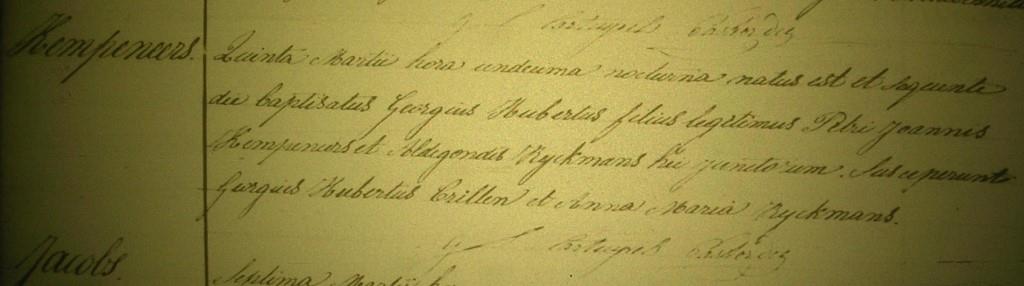 Kempeneers. Quinta Martii hora undecima nocturna natus est et sequente
die baptisatus Georgius Hubertus filius legitimus Petri Joannis
Kempeneers et Aldegondis Ryckmans hic junctorum. Susceperunt
Georgius Hubertus Crillen et Anna Maria Ryckmans.
Jacobs. Septima Martii